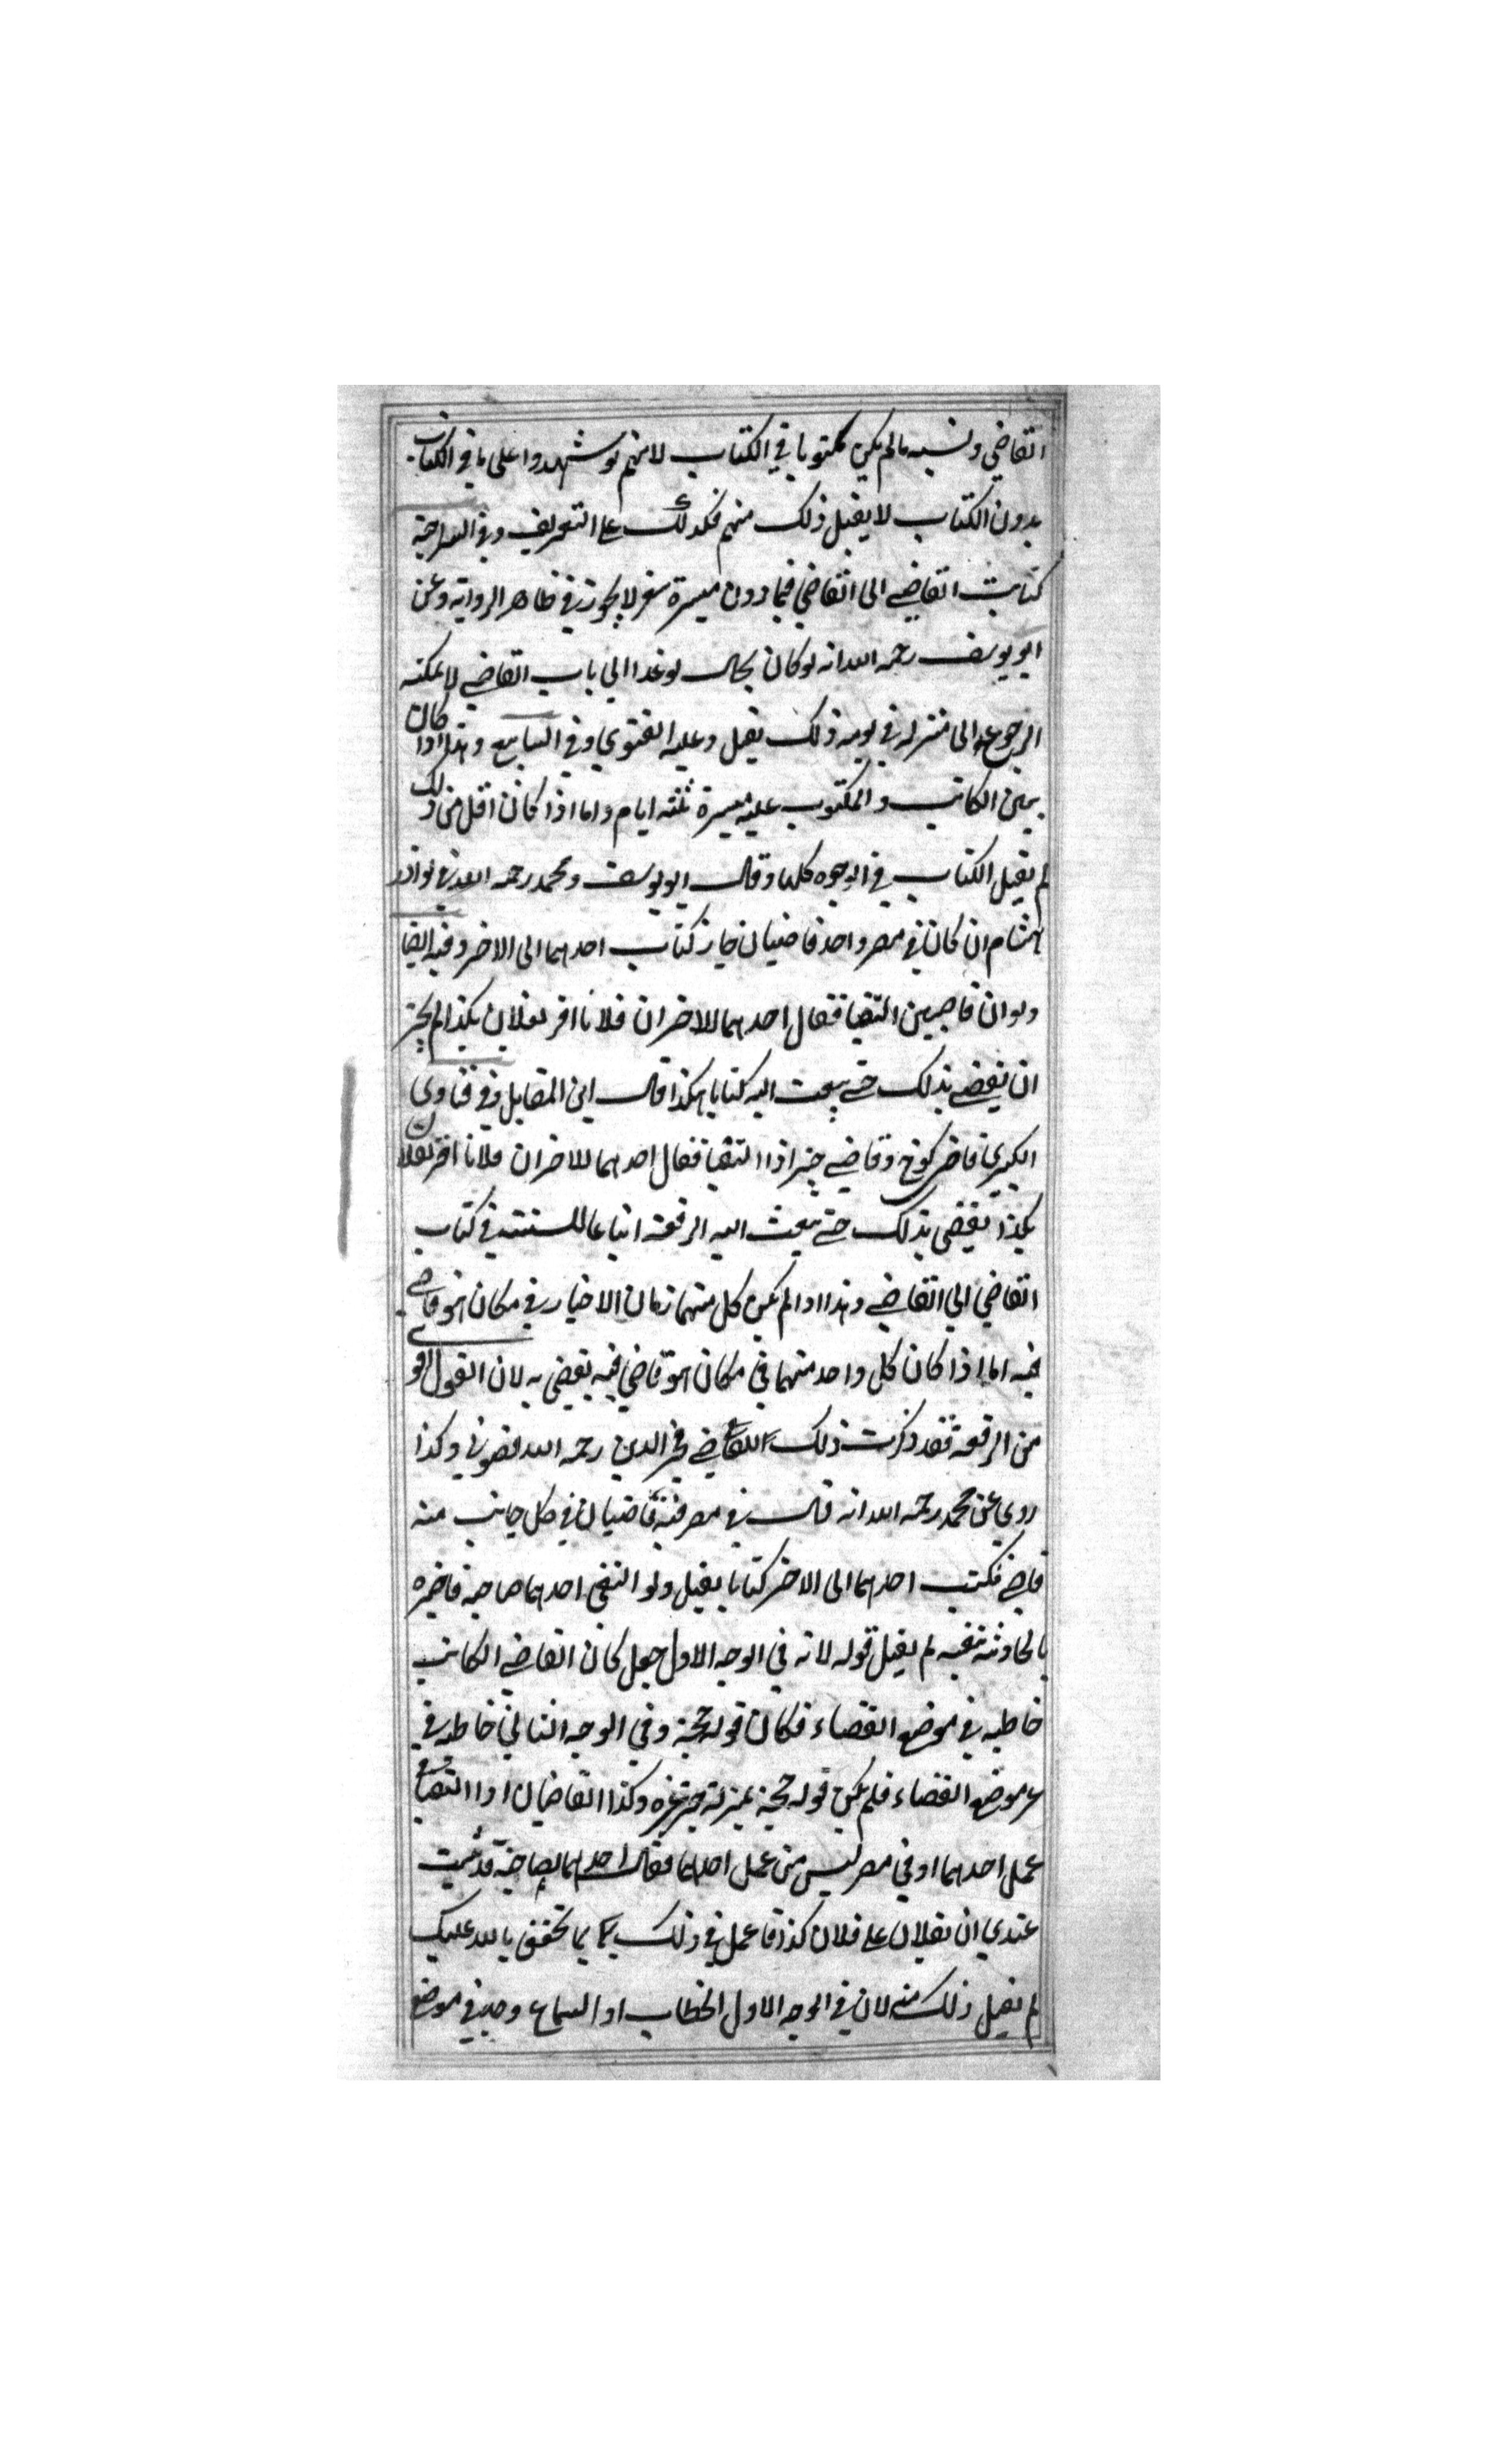 القاضي ونسبه مالم يكن مكتوبا في الكتاب لانهم لو شهدوا على ما في الكتاب
بدون الكتاب لا يقبل ذلك منهم فكذلك على التعريف وفي السراجية
كتاب القاضي الى القاضي فيما دون ميسرة سفر لا يجوز في ظاهر الرواية وعن
ابو يوسف رحمه الله انه لو كان بحال لو غدا الى باب القاضي لا يمكنه
الرجوع الى منزله في يومه ذلك يقبل وعليه الفتوى وفي الينابيع وهذا اذا كان
بين الكاتب والمكتوب عليه ميسرة ثلثة ايام واما اذا كان اقل من ذلك
لم يقبل الكتاب في الوجوه كلها وقال ابو يوسف ومحمد رحمه الله في نوادر
هشام ان كان في مصر واحد قاضيان جاز كتاب احدهما الى الاخر وفيه ايضا
ولو ان قاضيين التقيا فقال احدهما للاخر ان فلانا اقر لفلان بكذا لم يجز
ان يقضي بذلك حتى يبعث اليه كتابا هكذا قال ابن المقاتل وفي فتاوى
الكبرى قاضي كوفة وقاضي اذا التقيا فقال احدهما للاخر ان فلانا اقر لفلان
بكذا يقضي بذلك حتى يبعث اليه الرقعة اتباعا للسنة في كتاب
القاضي الى القاضي وهذا اذا لم يكن كل منهما زمان الاخبار في مكان هو قاضي
فيه اما اذا كان كل واحد منهما في مكان هو قاضي فيه يقضي به لان القول اقو
من الرقعة فقد ذكرت ذلك للقاضي فخر الدين رحمه الله فصوبني وكذا
روي عن محمد رحمه الله انه قال في مصر فيه قاضيان في كل جانب منه
قاضي فكتب احدهما الى الاخر كتابا يقبل ولو التقى احدهما صاحبه فاخبره
بالحادثة بنفسه لم يقبل قوله لانه في الوجه الاول جعل كان القاضي الكاتب
خاطبه في موضع القضاء فكان قوله حجة وفي الوجه الثاني خاطبه في
غير موضع القضاء فلم يكن قوله حجة بمنزلة غيره وكذا القاضيان اذا التقيا في
عمل احدهما او في مصر ليس من عمل احدهما فقال احدهما لصاحبه قد ثبت
عندي ان لفلان على فلان كذا فاعمل في ذلك بما يحق بالله عليك
لم يقبل ذلك منه لان في الوجه الاول الخطاب او السماع وجد في موضع